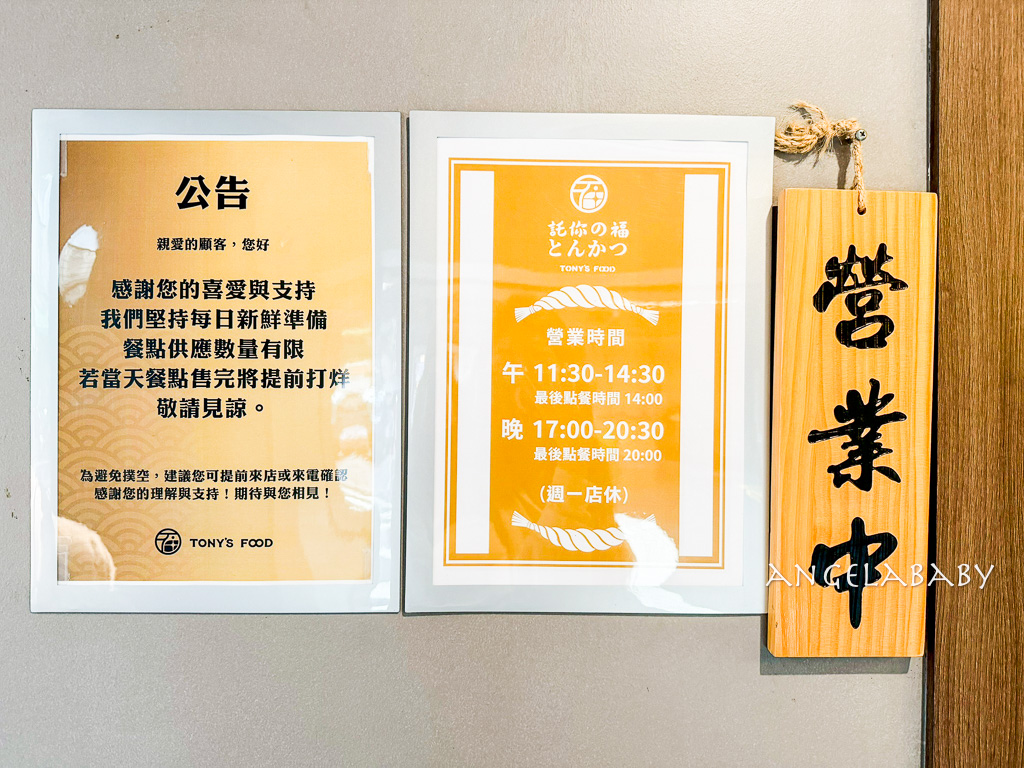 公告
親愛的顧客，您好
感謝您的喜愛與支持
我們堅持每日新鮮準備
餐點供應數量有限
若當天餐點售完將提前打烊
敬請見諒。
為避免撲空，建議您可提前來店或來電確認
感謝您的理解與支持！期待與您相見！
TONY'S FOOD
託你の福
とんかつ
TONY'S FOOD
營業時間
午 11:30-14:30
最後點餐時間 14:00
晚 17:00-20:30
最後點餐時間 20:00
(週一店休)
營業中
ANGELABABY